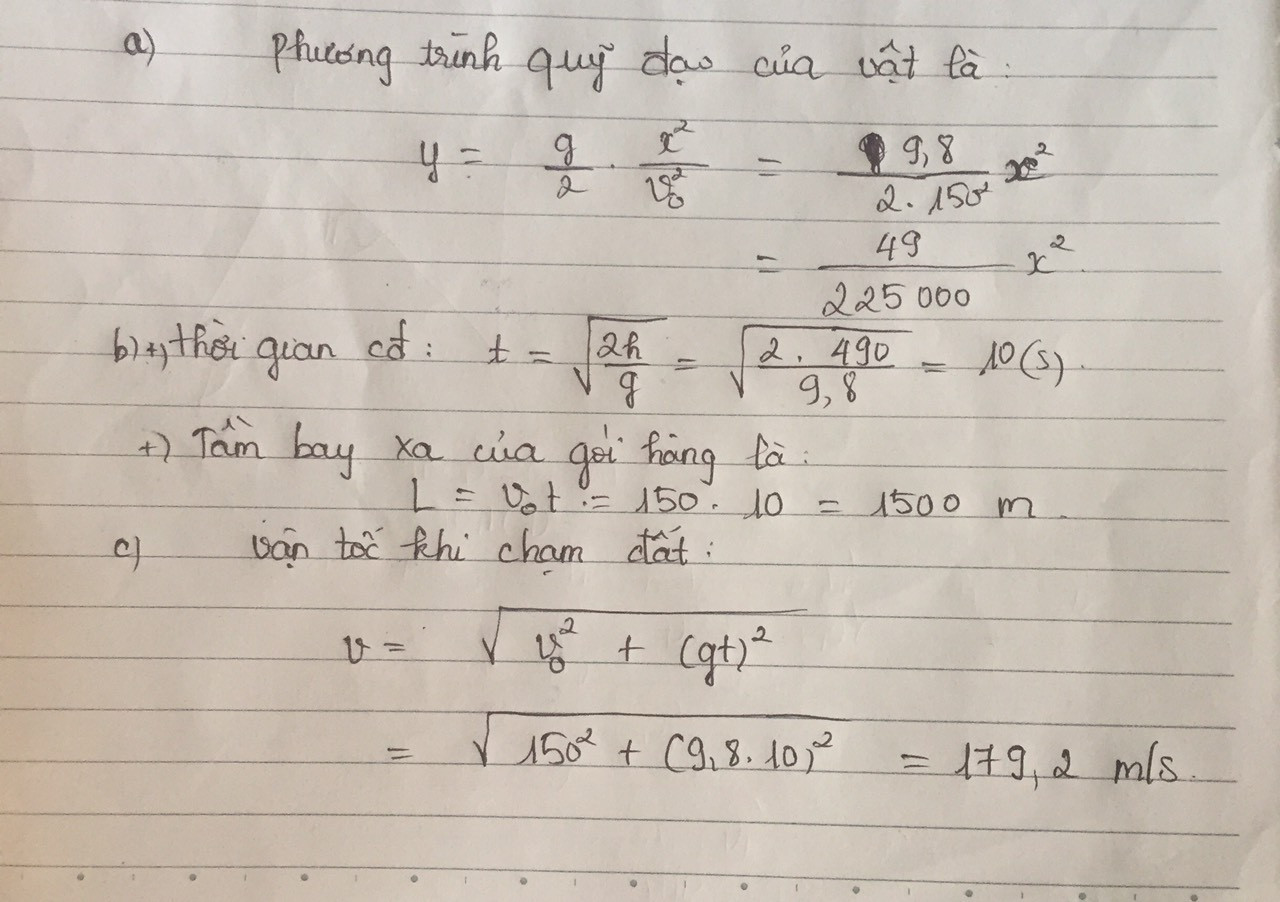 a) Phương trình quỹ đạo của vật là:
y = g/2 . x²/v₀² = 9,8/2.150² x²
= 49/225000 x².
b) +) thời gian cđ: t = √(2h/g) = √(2.490/9,8) = 10(s).
+) Tầm bay xa của gói hàng là:
L = v₀t = 150.10 = 1500 m.
c) vận tốc khi chạm đất:
v = √(v₀² + (gt)²)
= √(150² + (9,8.10)²) = 179,2 m/s.